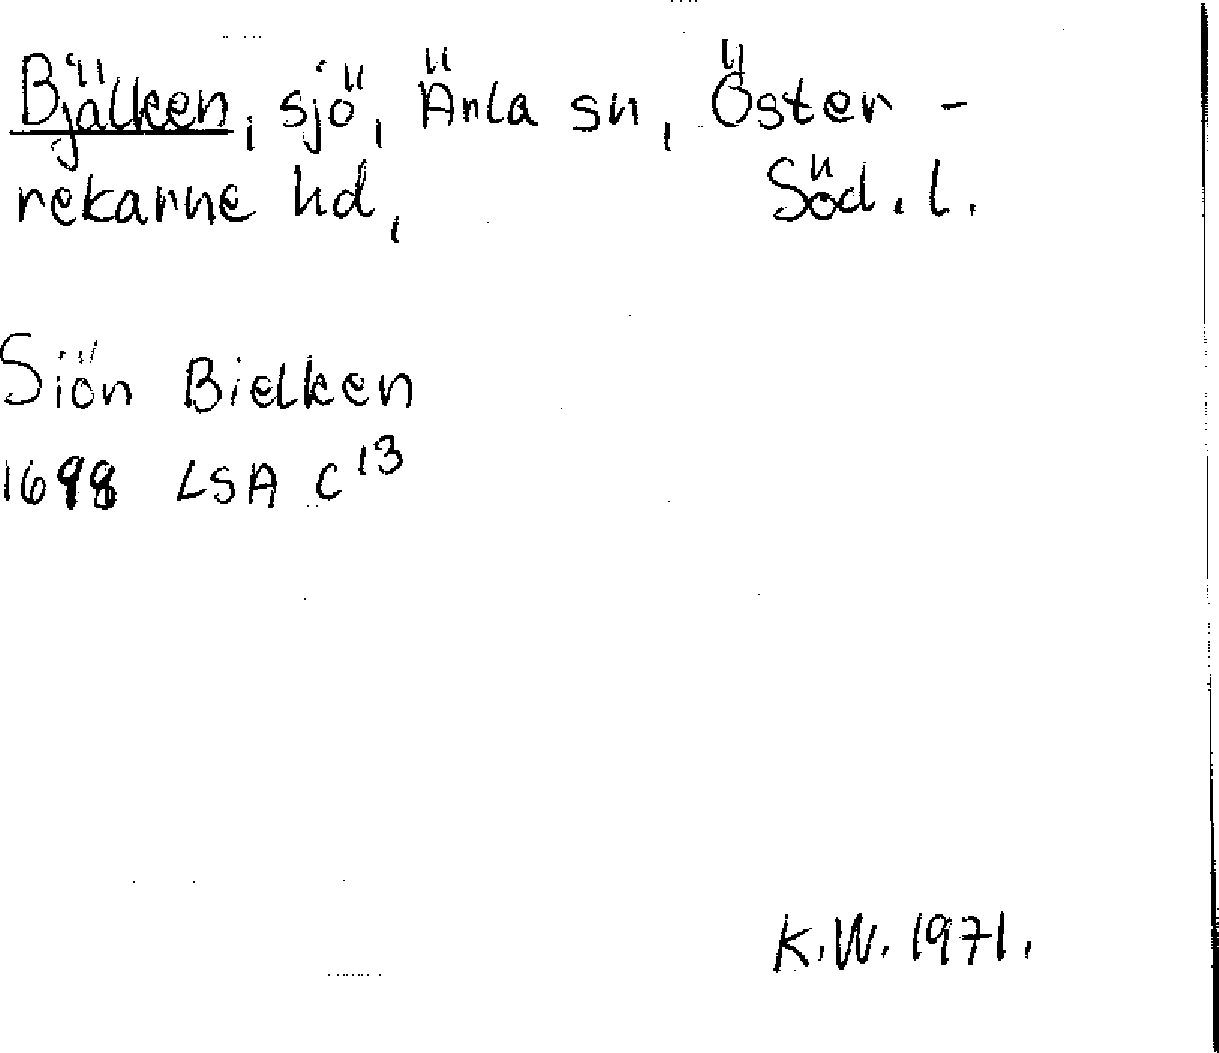 Bjälken, sjö, Änla sn, Öster-
rekarne hd, Söd. l.
Siön Bielken
1698 LSA C 13
K.W. 1971.